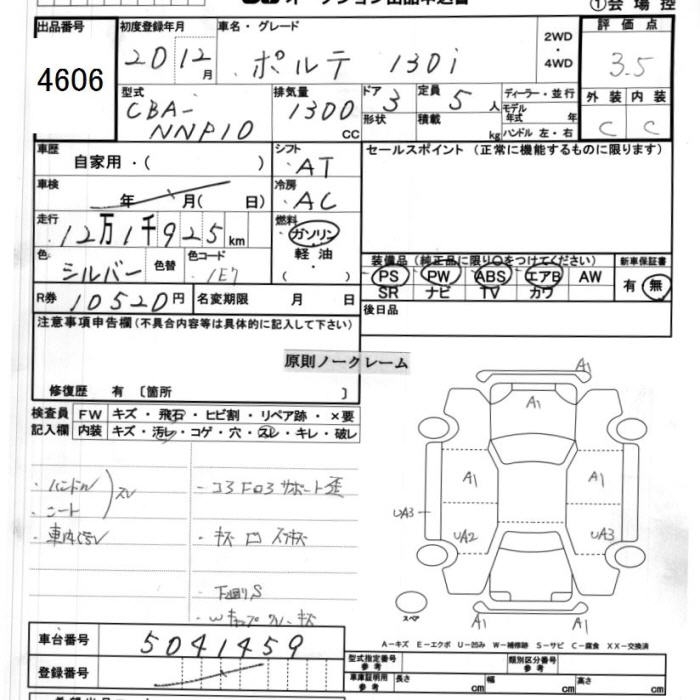 オークション出品申込書
①会場控
出品番号 初度登録年月 車名・グレード 2WD・4WD 評価点
4606 20 12月 ポルテ 130i 3.5
型式 排気量 ドア 3 定員 5人 ディーラー・並行 外装 内装
CBA-NNP10 1300 CC 形状 積載 kg モデル年式 年 C C
ハンドル 左・右
車歴 自家用・( ) シフト AT セールスポイント (正常に機能するものに限ります)
車検 年 月( 日) 冷房 AC
走行 12万1千925km 燃料 ガソリン
軽油
( ・ )
色 シルバー 色替 色コード 1E7
装備品(純正品に限り○をつけてください) 新車保証書
PS PW ABS エアB AW 有・無
SR ナビ TV カワ
R券 10520円 名変期限 月 日 後日品
注意事項申告欄(不具合内容等は具体的に記入して下さい)
原則ノークレーム
修復歴 有 〔箇所 〕
検査員 FW キズ・飛石・ヒビ割・リペア跡・×要
記入欄 内装 キズ・汚レ・コゲ・穴・スレ・キレ・破レ
・ハンドル
スレ
・シート
・下廻りS
A1
A1
A1 A1
UA3
UA2 UA3
スペア
A1 A1
A-キズ E-エクボ U-凹み W-補修跡 S-サビ C-腐食 XX-交換済
車台番号 5041459
登録番号
型式指定番号 参考 類別区分番号 参考
車庫証明用 参考 長さ cm 幅 cm 高さ cm